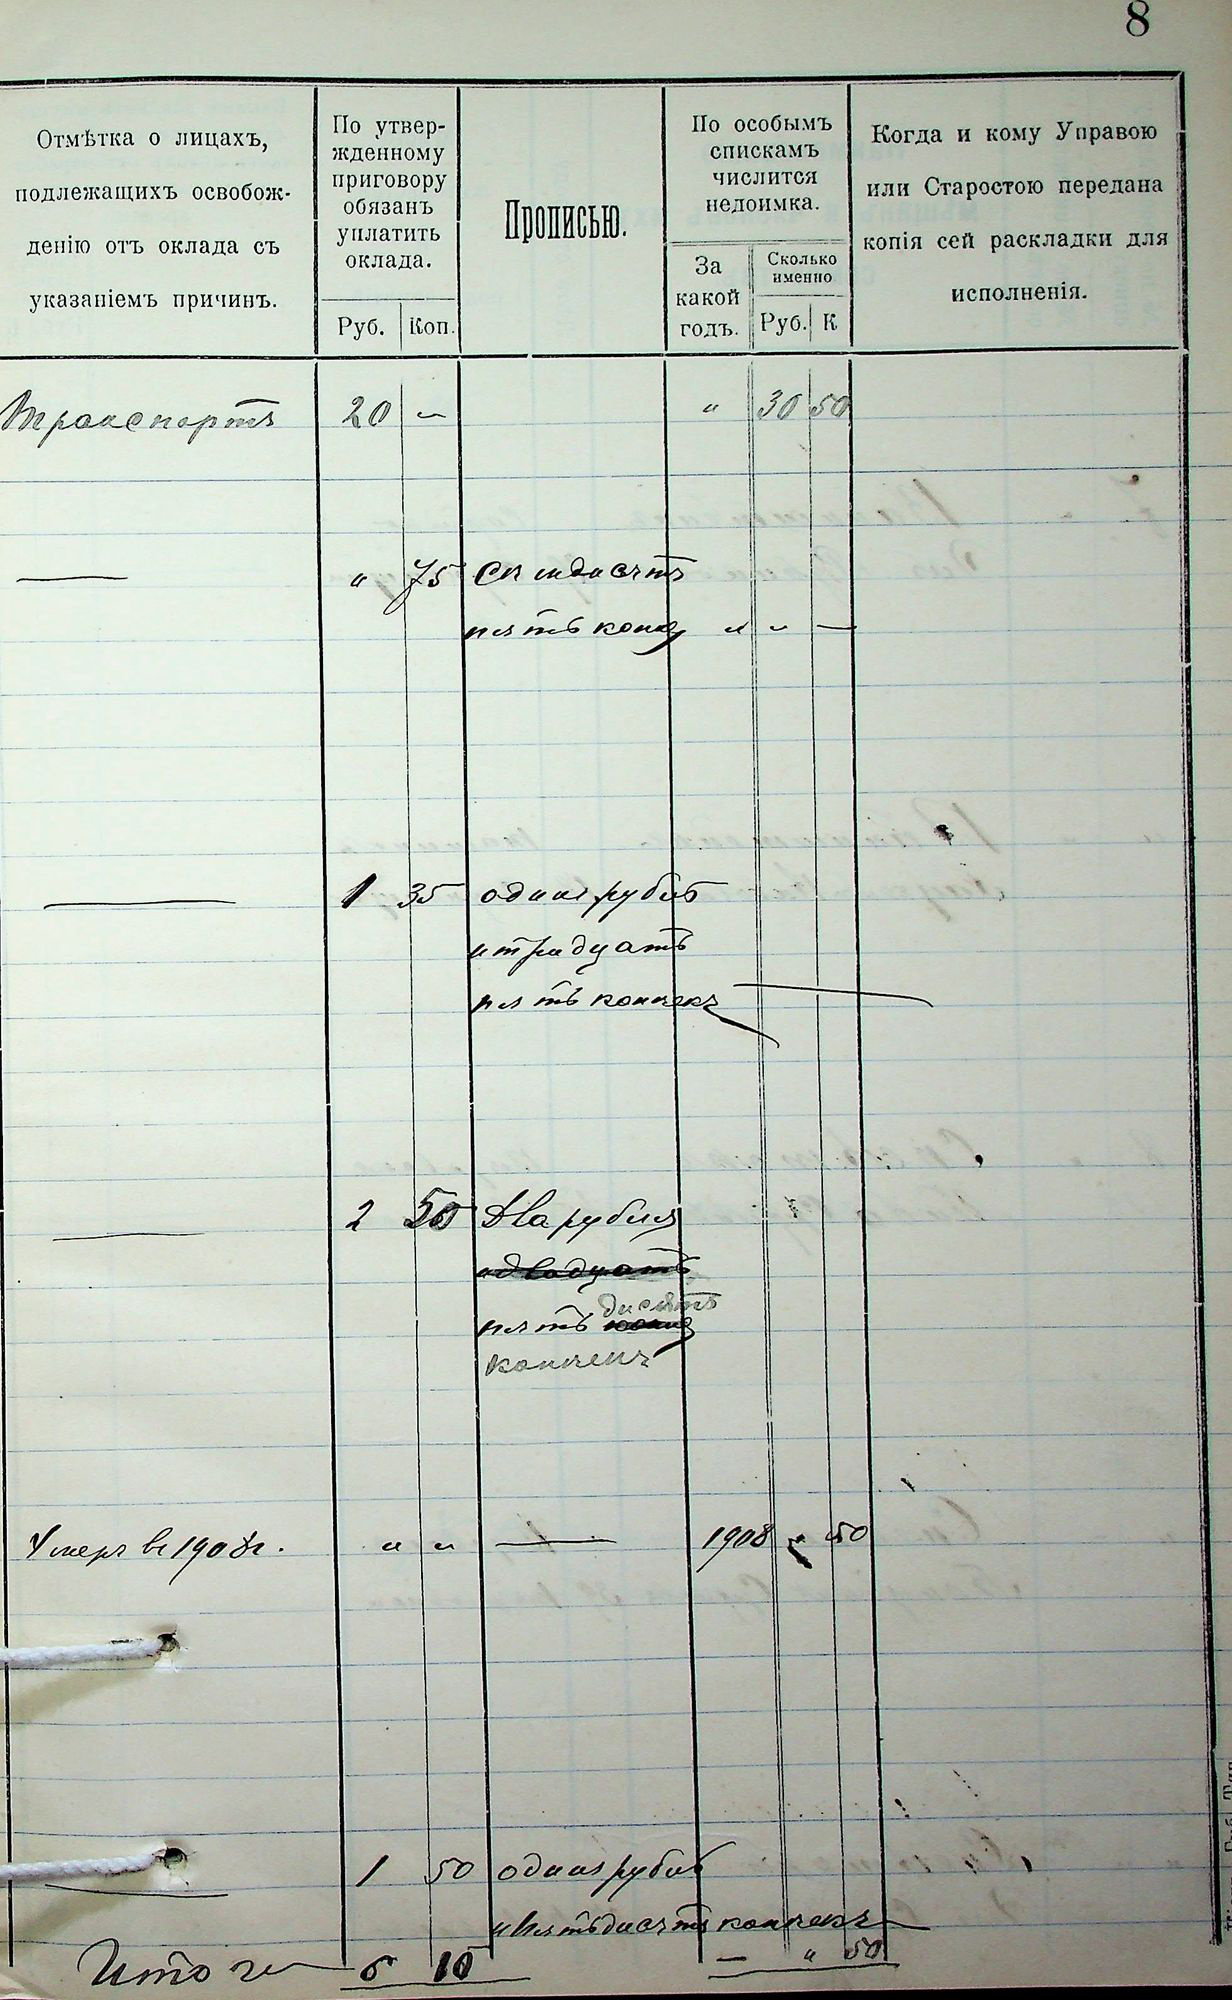 8
Отмѣтка о лицахъ,
подлежащихъ освобож-
денію отъ оклада съ
указаніемъ причинъ.
По утвер-
жденному
приговору
обязанъ
уплатить
оклада.
Руб. Коп.
Прописью.
По особымъ
спискамъ
числится
недоимка.
За
какой
годъ.
Сколько
именно
Руб. К
Когда и кому Управою
или Старостою передана
копія сей раскладки для
исполненія.
Транспортъ 20 — " 30 50
— " 75 Семьдесятъ
пять коп. " " —
— 1 35 одинъ рубль
и тридцать
пять копѣекъ —
— 2 50 Два рубля
и двадцать
десятъ
пять коп
копѣекъ
Умеръ въ 1908 г. " " — 1908 " 50
— 1 50 одинъ рубль
и пятьдесятъ копѣекъ
— " 50
Итого 6 10